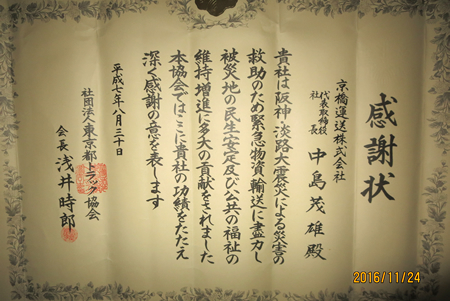 感謝状
京橋運送株式会社
代表取締役
社長
中島茂雄殿
貴社は阪神・淡路大震災による災害の
救助のため緊急物資輸送に盡力し
被災地の民生安定及び公共の福祉の
維持増進に多大の貢献をされました
本協会ではここに貴社の功績をたたえ
深く感謝の意を表します
平成七年八月三十日
社団法人東京都トラック協会
会長浅井時郎
2016/11/24